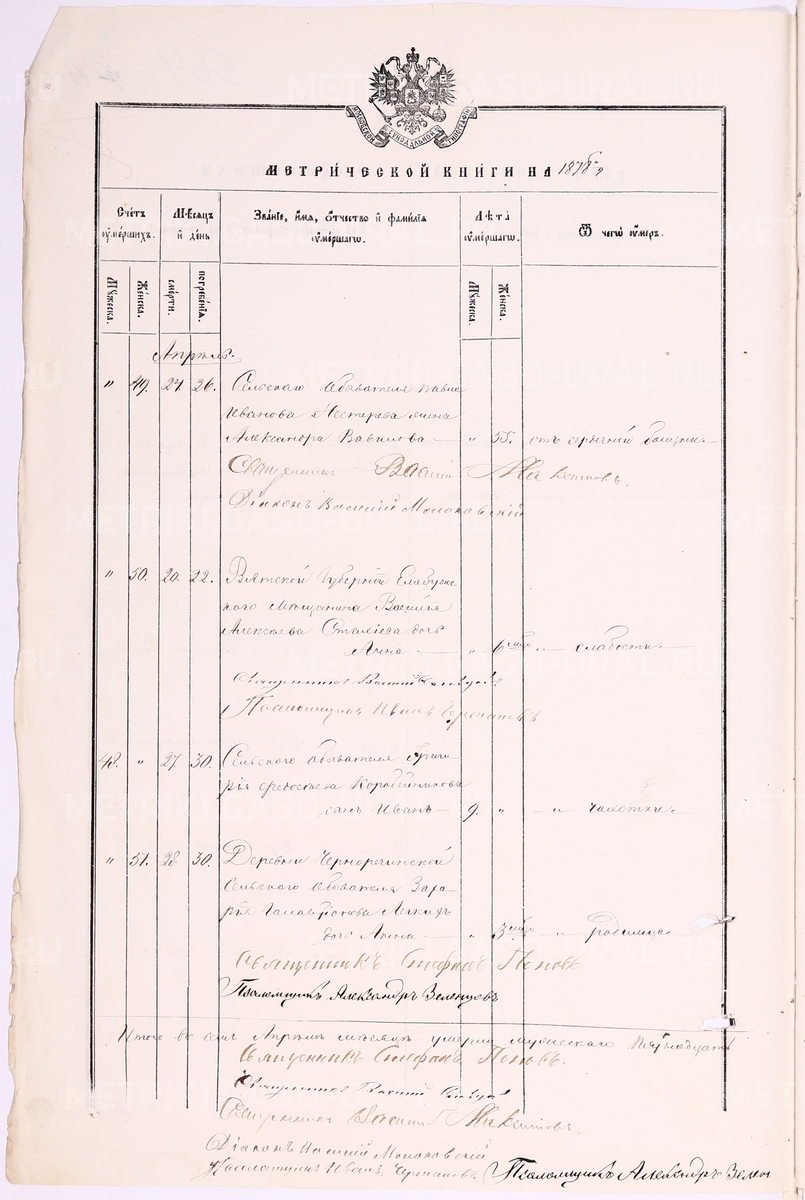 МОСКОВСКОЙ СѴНОДАЛЬНОЙ ТИПОГРАФІИ
МЕТРИ́ЧЕСКОЙ КНИ́ГИ НА 1878 г.
Счетъ ᲂумершихъ.
Мѣсяцъ и день
Званіе, имя, ѻтчество и фамилія ᲂумершагѡ.
Лѣта ᲂумершагѡ.
Ѿ чегѡ ᲂумеръ.
Мужеска. Женска. смерти. погребенія. Мужеска. Женска.
Апрѣль.
" 49. 24. 26. Сельскаго обывателя Павла
Иванова Нестерева жена
Александра Вавилова — " 55. отъ горячной болезни.
Священникъ Василій Никитинъ.
Діаконъ Василій Молоковскій
" 50. 20. 22. Вятской губерніи Елабужс
кого мѣщанина Василія
Алексѣева дочь
Анна — " 6 мѣс " слабости.
Священникъ Василій
Псаломщикъ Иванъ Черепановъ
48. " 27. 30. Сельского обывателя Григо
рія Коробейникова
сынъ Иванъ — 9. " — " чахотки.
" 51. 28. 30. Деревни Черноречинской
сельского обывателя Заха
рія Галактіонова Легкихъ
дочь Анна — " 3 мѣс " родимца.
Священникъ Стефанъ Поповъ
Псаломщикъ Александръ Зеленцовъ
Итого въ семъ Апрѣлѣ мѣсяцѣ умерло мужескаго
Священникъ Стефанъ Поповъ.
Священникъ Василій
Священникъ Василій Никитинъ.
Діаконъ Василій Молоковскій
Псаломщикъ Иванъ Черепановъ Псаломщикъ Александръ Зелен